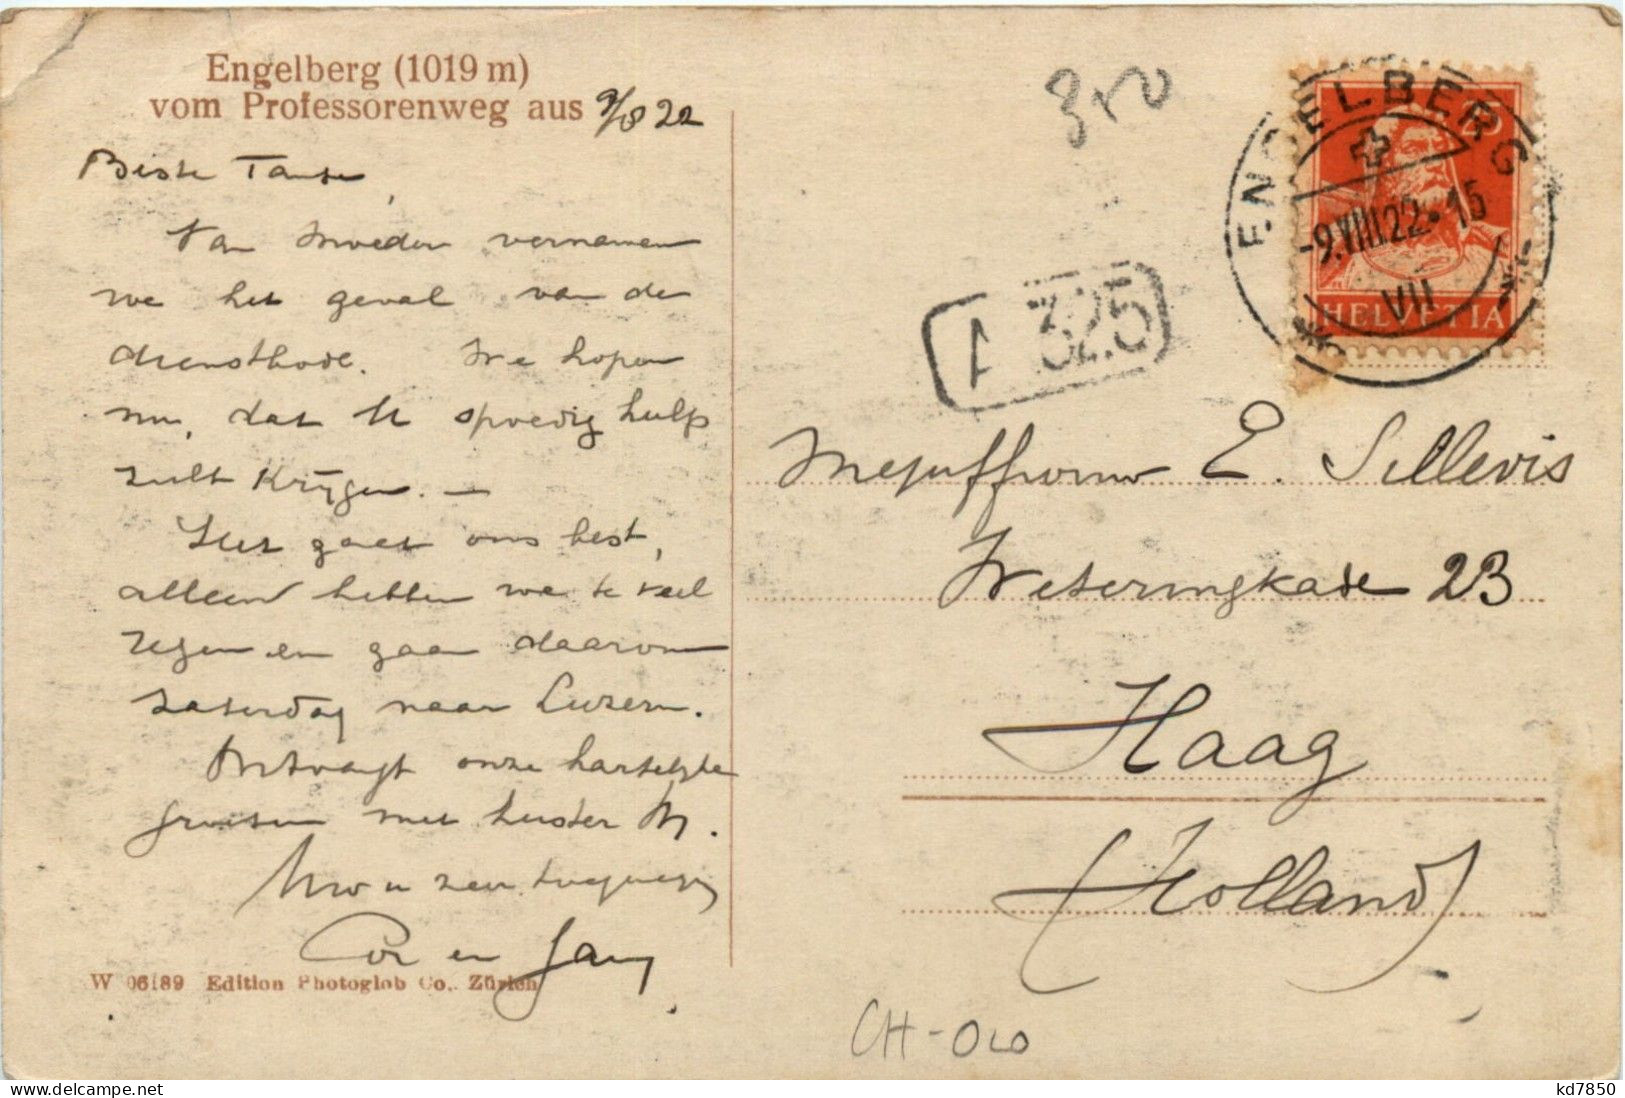 Engelberg (1019 m)
vom Professorenweg aus 9/8 22
Beste Tante,
Van Moeder vernamen
we het geval van de
dienstbode. We hopen
nu, dat U spoedig hulp
zult krijgen. —
Het gaat ons best,
alleen hebben we te veel
regen en gaan daarom
zaterdag naar Luzern.
Ontvangt onze hartelijke
groeten met
Uw u zeer toegenegen
Cor en Jan
W 06189 Edition Photoglob Co., Zürich
ENGELBERG
-9.VIII.22.15
VII
25
HELVETIA
A 325
Mejuffrouw E. Sillevis
Weteringkade 23
Haag
(Holland)
CH-OLO
kd7850